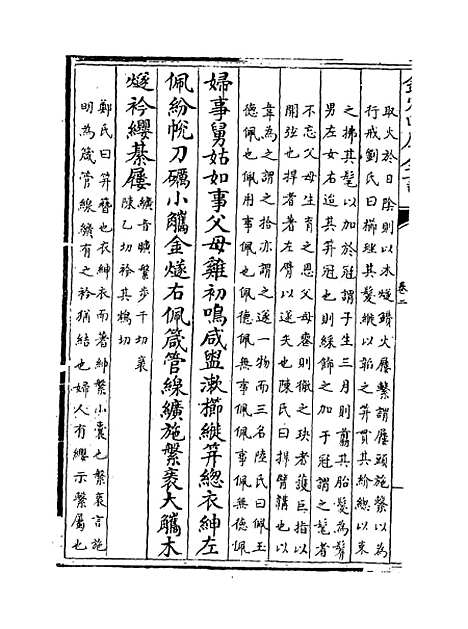 取火於日陰則以木燧鑽火屨繫謂屨頭施繫以為
行戒劉氏曰櫛理其髮縰以韜之笄貫其紒總以束
之拂其髦以加於冠謂子生三月則翦其胎髮為鬌
男左女右迨其笄冠也則綵飾之加于冠謂之髦者
不忘父母生育之恩父母喪則徹之玦者護巨指以
開弦也捍者著左臂以遂矢也陳氏曰捍臂韝也以
韋為之謂之拾亦謂之遂一物而三名陸氏曰佩玉
德佩也佩用事佩也德佩無事佩事佩無德佩
婦事舅姑如事父母雞初鳴咸盥漱櫛縰笄總衣紳左
佩紛帨刀礪小觿金燧右佩箴管線纊施縏袠大觿木
燧衿纓綦屨纊音曠縏步干切袠
陳乙切衿其鴆切
鄭氏曰笄簪也衣紳衣而著紳縏小囊也縏袠言施
明為箴管線纊有之衿猶結也婦人有纓示繫屬也
卷二